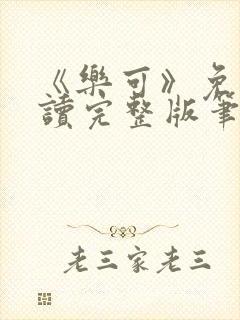 《樂可》免
讀完整版筆
老三家老三